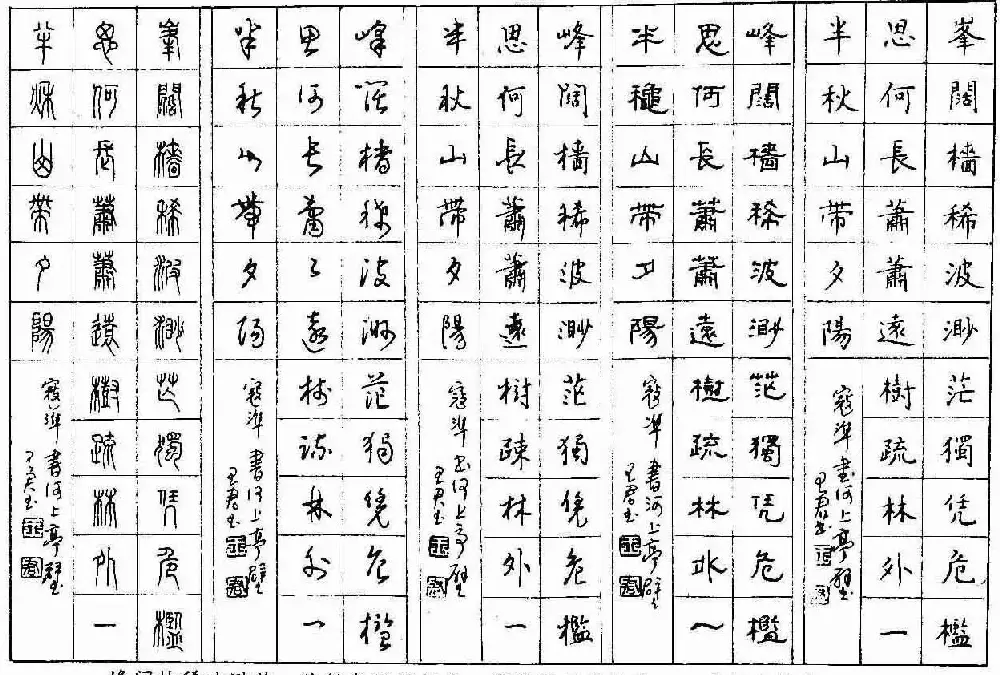 峯闊檣稀波渺茫獨凭危檻
思何長蕭蕭遠樹疏林外一
半秋山帶夕陽
寇準 書河上亭壁
峰闊檣稀波渺茫獨凭危檻
思何長蕭蕭遠樹疏林外一
半穐山帶夕陽
寇準 書河上亭壁
峰闊檣稀波渺茫獨凭危檻
思何長蕭蕭遠樹疎林外一
半秋山帶夕陽
寇準 書河上亭壁
峰闊檣稀波渺茫獨凭危檻
思何長蕭〻遠樹疏林外一
半秋山帶夕陽
寇準 書河上亭壁
峯闊檣稀波渺茫獨凭危檻
思何長蕭蕭遠樹疏林外一
半秋山帶夕陽
寇準 書河上亭壁